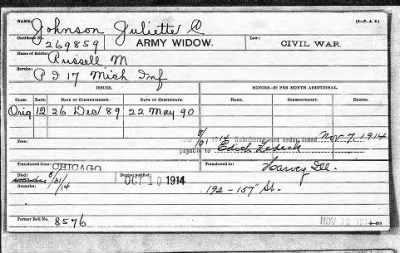 NAME: Johnson Juliette C (3—P. A. S.)
Certificate No. 269859 ARMY WIDOW. Law: CIVIL WAR.
Name of Soldier: Russell M
Service: 17 Mich Inf
ISSUES. HONORS—$2 PER MONTH ADDITIONAL.
CLASS. RATE. DATE OF COMMENCEMENT. DATE OF CERTIFICATE. NAME. COMMENCEMENT.
Orig 12 26 Dec 89 22 May 90
Fees: Reimbursement order issued Nov 7, 1914
payable to Edith
Transferred from: CHICAGO Transferred to: Harvey Ill.
Died: 8/31/14 OCT 10 1914
Remarks: 192—157 St.
Former Roll No. 8576 NOV 12 1914